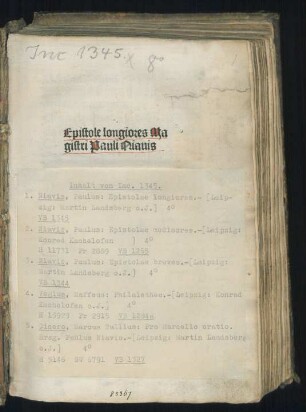 Inc 1345
8°
Epistole longiores Ma
gistri Pauli Niauis
Inhalt von Inc. 1345.
1. Niavis, Paulus: Epistolae longiores.- [Leip-
zig: Martin Landsberg o.J.] 4°
2. Niavis, Paulus: Epistolae mediocres.- [Leipzig:
Konrad Kachelofen ] 4°
3. Niavis, Paulus: Epistolae breves.- [Leipzig:
Martin Landsberg o.J.] 4°
VB 1244
4. Vegius, Maffeus: Philalethes.- [Leipzig: Konrad
Kachelofen o.J.] 4°
5. Cicero, Marcus Tullius: Pro Marcello oratio.
Hreg. Paulus Niavis.- [Leipzig: Martin Landsberg
o.J.] 4°